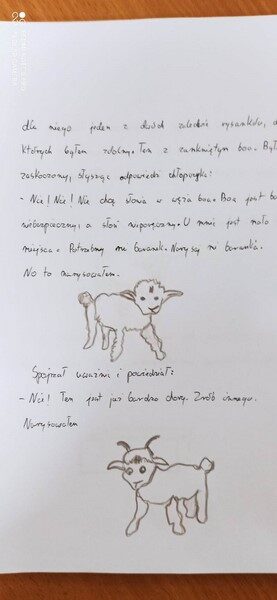 dla niego jeden z dwóch zaledwie rysunków, d
których byłem zdolny. Ten z zamkniętym boa. Był
zaskoczony, słysząc odpowiedź chłopczyka:
- Nie! Nie! Nie chcę słonia w wężu boa. Boa jest ba
niebezpieczny, a słoń nieporęczny. U mnie jest mało
miejsca. Potrzebny mi baranek. Narysuj mi baranka.
No to narysowałem.
Spojrzał uważnie i powiedział:
- Nie! Ten jest już bardzo chory. Zrób innego.
Narysowałem